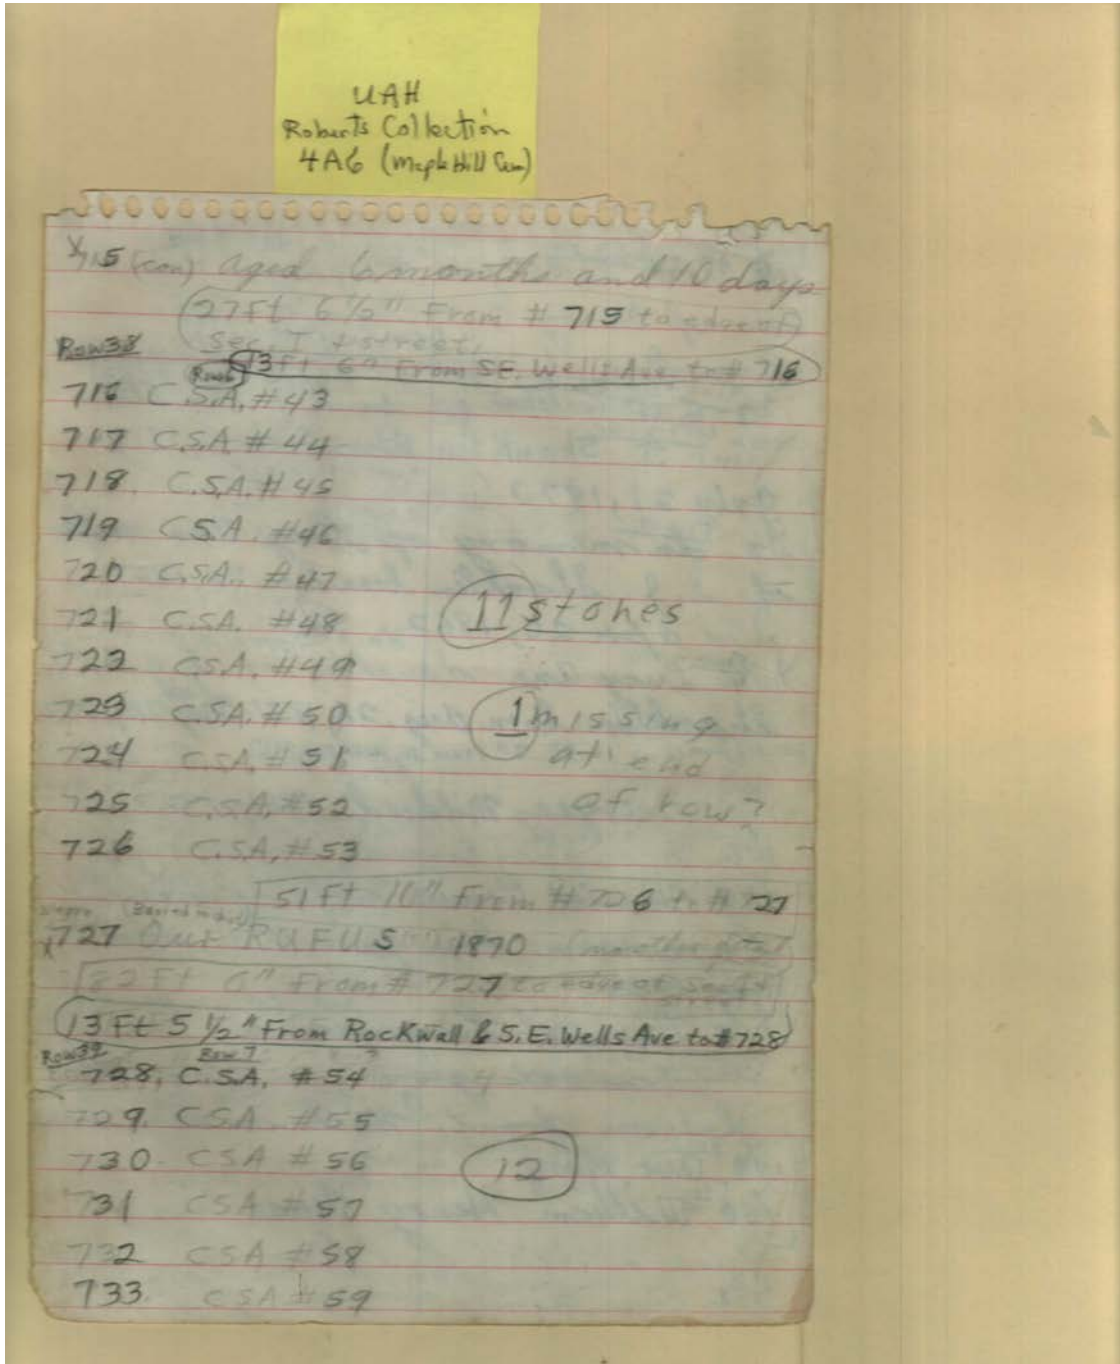 UAH
Roberts Collection
4A6 (Maple Hill Cem)
715 (con) aged 6 months and 10 days
27 Ft 6 1/2" From # 715 to edge of
Sec. I & street.
Row 38
13 Ft 6" From SE. Wells Ave to # 716
Row 6
716 C.S.A. #43
717 C.S.A. #44
718. C.S.A. #45
719 C.S.A. #46
720 C.S.A. #47
721 C.S.A. #48
11 stones
722 C.S.A. #49
723 C.S.A. #50
1 missing
724 C.S.A. #51
at end
725 C.S.A. #52
of row?
726 C.S.A. #53
51 Ft 11" From # 726 to # 727
Negro
X727 Our RUFUS 1870
82 Ft 6" From # 727 to edge of Sec. &
street
13 Ft 5 1/2" From Rockwall & S.E. Wells Ave to #728
Row 39 Row 7
728, C.S.A. #54
729. CSA #55
730- CSA #56
12
731 CSA #57
732 CSA #58
733. CSA #59